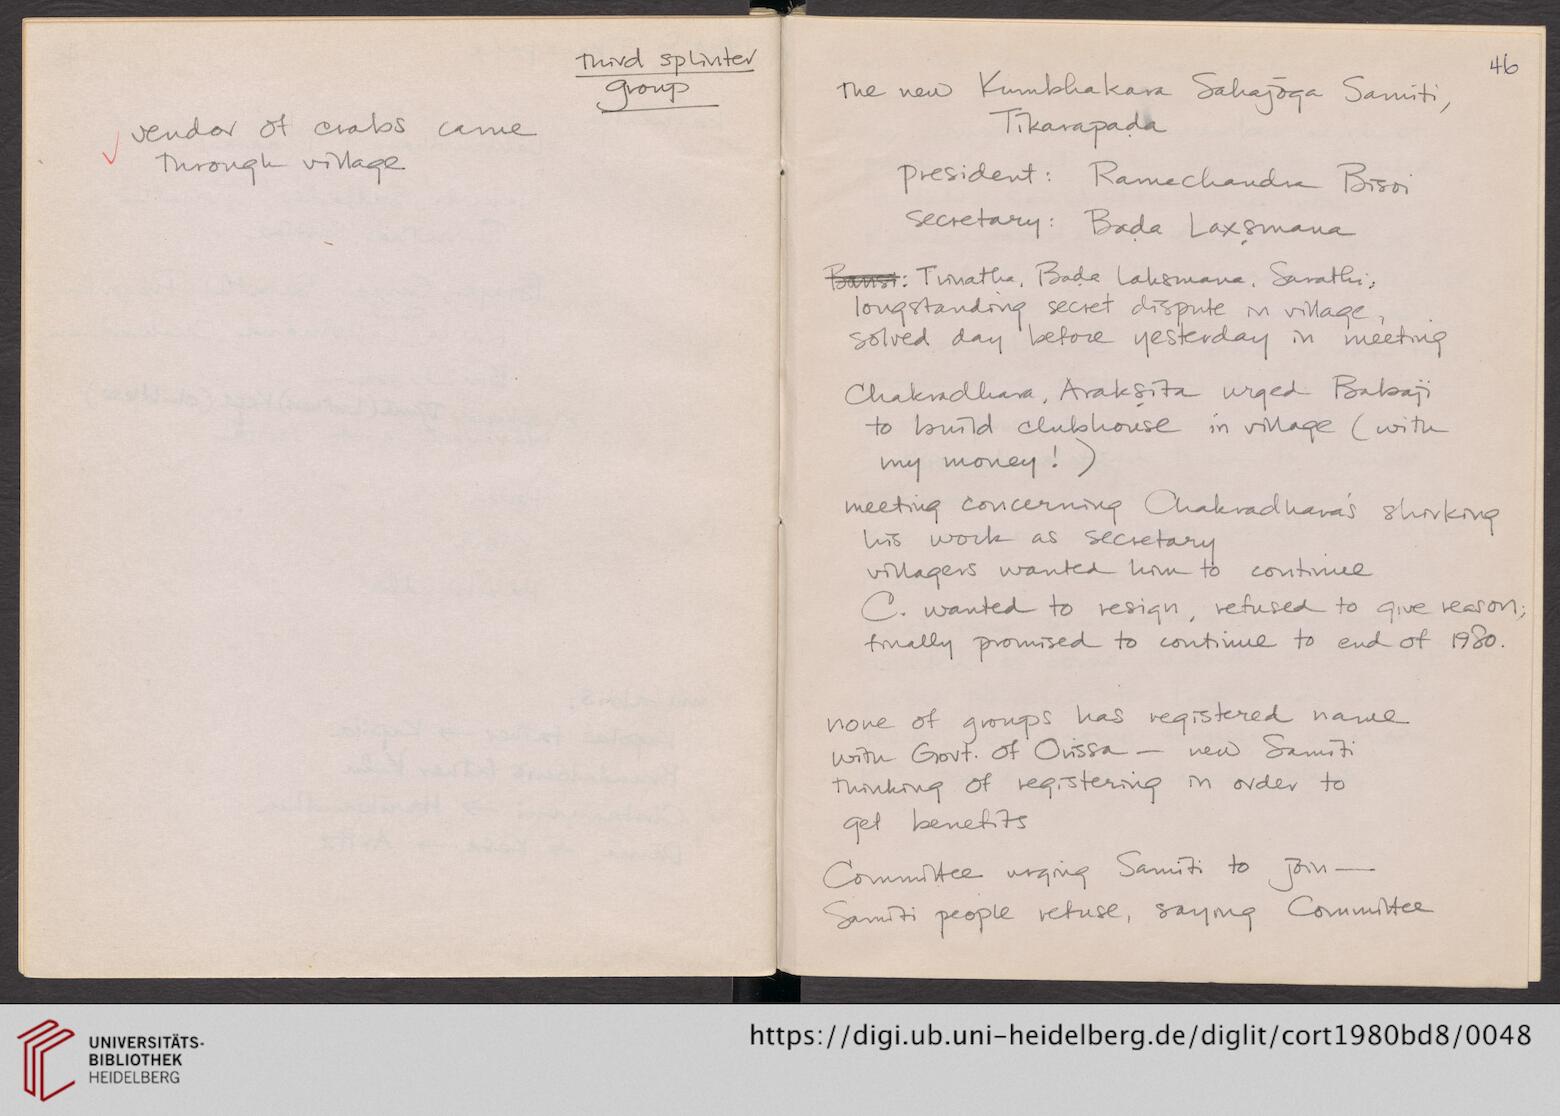 third splinter
group
✓ vendor of crabs came
through village
46
The new Kumbhakara Sahajōga Samiti,
Tikarapaḍa
president: Ramachandra Bisoi
secretary: Baḍa Laxṣmana
Bansi: Trinatha, Baḍa Lakṣmana, Sarathi;
longstanding secret dispute in village,
solved day before yesterday in meeting
Chakradhara, Arakṣita urged Babaji
to build clubhouse in village (with
my money!)
meeting concerning Chakradhara's shirking
his work as secretary
villagers wanted him to continue
C. wanted to resign, refused to give reason;
finally promised to continue to end of 1980.
none of groups has registered name
with Govt. of Orissa — new Samiti
thinking of registering in order to
get benefits
Committee urging Samiti to join —
Samiti people refuse, saying Committee
UNIVERSITÄTS-
BIBLIOTHEK
HEIDELBERG
https://digi.ub.uni-heidelberg.de/diglit/cort1980bd8/0048